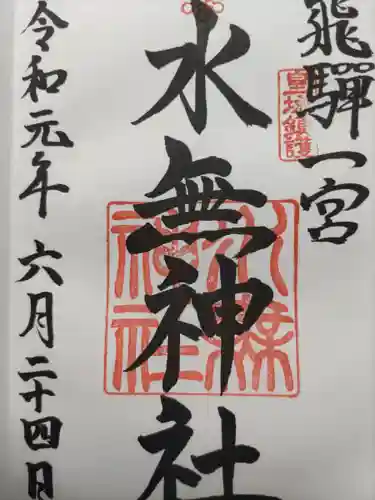 飛騨一宮
皇城鎮護
水無神社
水無神社
令和元年六月二十四日